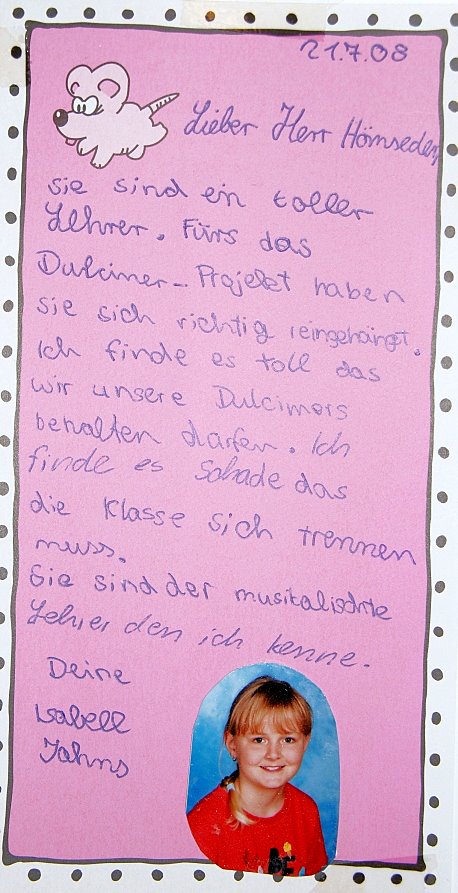 21.7.08
Lieber Herr Hömseder,
sie sind ein toller
Lehrer. Fürs das
Dulcimer-Projekt haben
sie sich richtig reingehängt.
Ich finde es toll das
wir unsere Dulcimors
behalten darfen. Ich
finde es Schade das
die Klasse sich trennen
muss.
Sie sind der musikalischte
Lehrer den ich kenne.
Deine
Isabell
Jahns